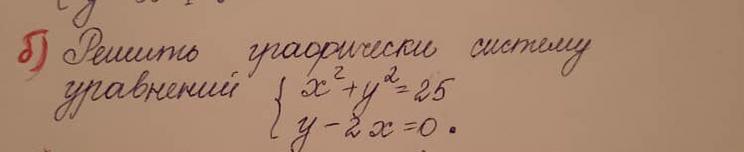 б) Решить графически систему
уравнений { x²+y²=25
y-2x=0.